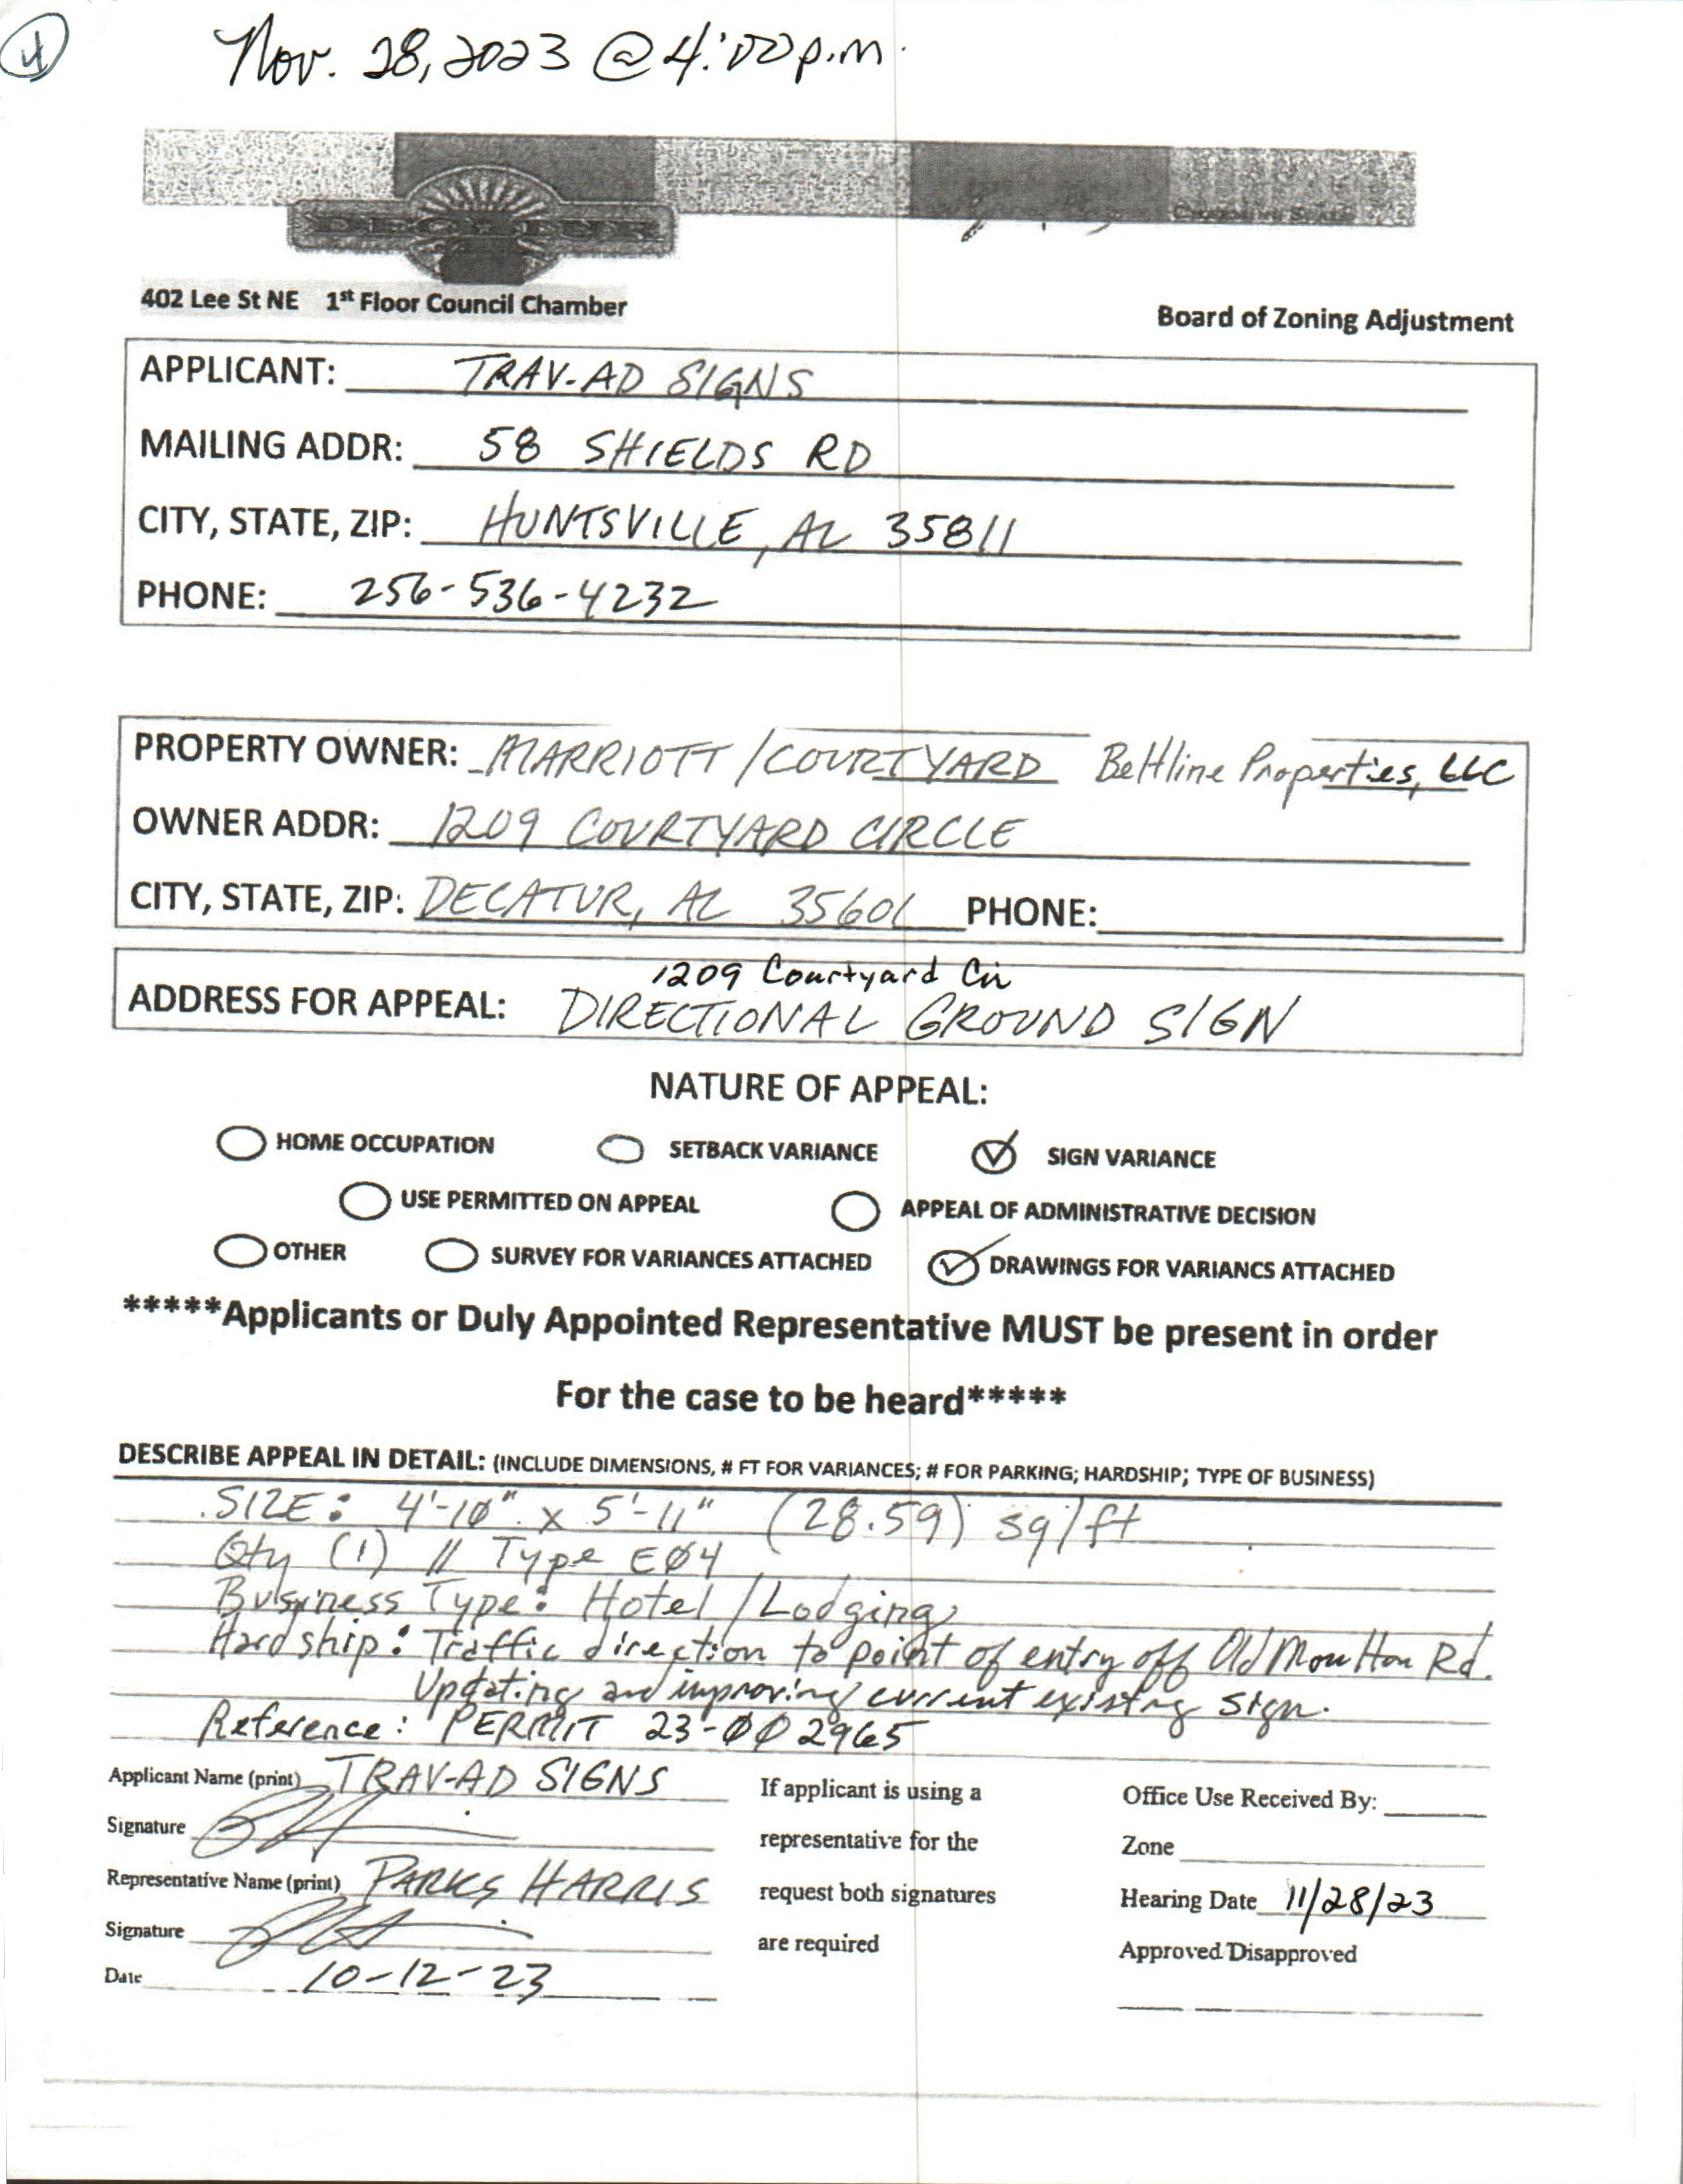 4
Nov. 28, 2023 @ 4:00 p.m.
DECATUR
402 Lee St NE 1st Floor Council Chamber
Board of Zoning Adjustment
APPLICANT: TRAV-AD SIGNS
MAILING ADDR: 58 SHIELDS RD
CITY, STATE, ZIP: HUNTSVILLE, AL 35811
PHONE: 256-536-4232
PROPERTY OWNER: MARRIOTT / COURTYARD Beltline Properties, LLC
OWNER ADDR: 1209 COURTYARD CIRCLE
CITY, STATE, ZIP: DECATUR, AL 35601 PHONE:
1209 Courtyard Cir
ADDRESS FOR APPEAL: DIRECTIONAL GROUND SIGN
NATURE OF APPEAL:
HOME OCCUPATION SETBACK VARIANCE SIGN VARIANCE
USE PERMITTED ON APPEAL APPEAL OF ADMINISTRATIVE DECISION
OTHER SURVEY FOR VARIANCES ATTACHED DRAWINGS FOR VARIANCS ATTACHED
*****Applicants or Duly Appointed Representative MUST be present in order
For the case to be heard*****
DESCRIBE APPEAL IN DETAIL: (INCLUDE DIMENSIONS, # FT FOR VARIANCES; # FOR PARKING; HARDSHIP; TYPE OF BUSINESS)
SIZE: 4'-10" x 5'-11" (28.59) sq/ft
Qty (1) // Type E04
Business Type: Hotel / Lodging
Hardship: Traffic direction to point of entry off Old Moulton Rd.
Updating and improving current existing sign.
Reference: PERMIT 23-002965
Applicant Name (print) TRAV-AD SIGNS If applicant is using a Office Use Received By:
Signature representative for the Zone
Representative Name (print) PARKS HARRIS request both signatures Hearing Date 11/28/23
Signature are required Approved Disapproved
Date 10-12-23